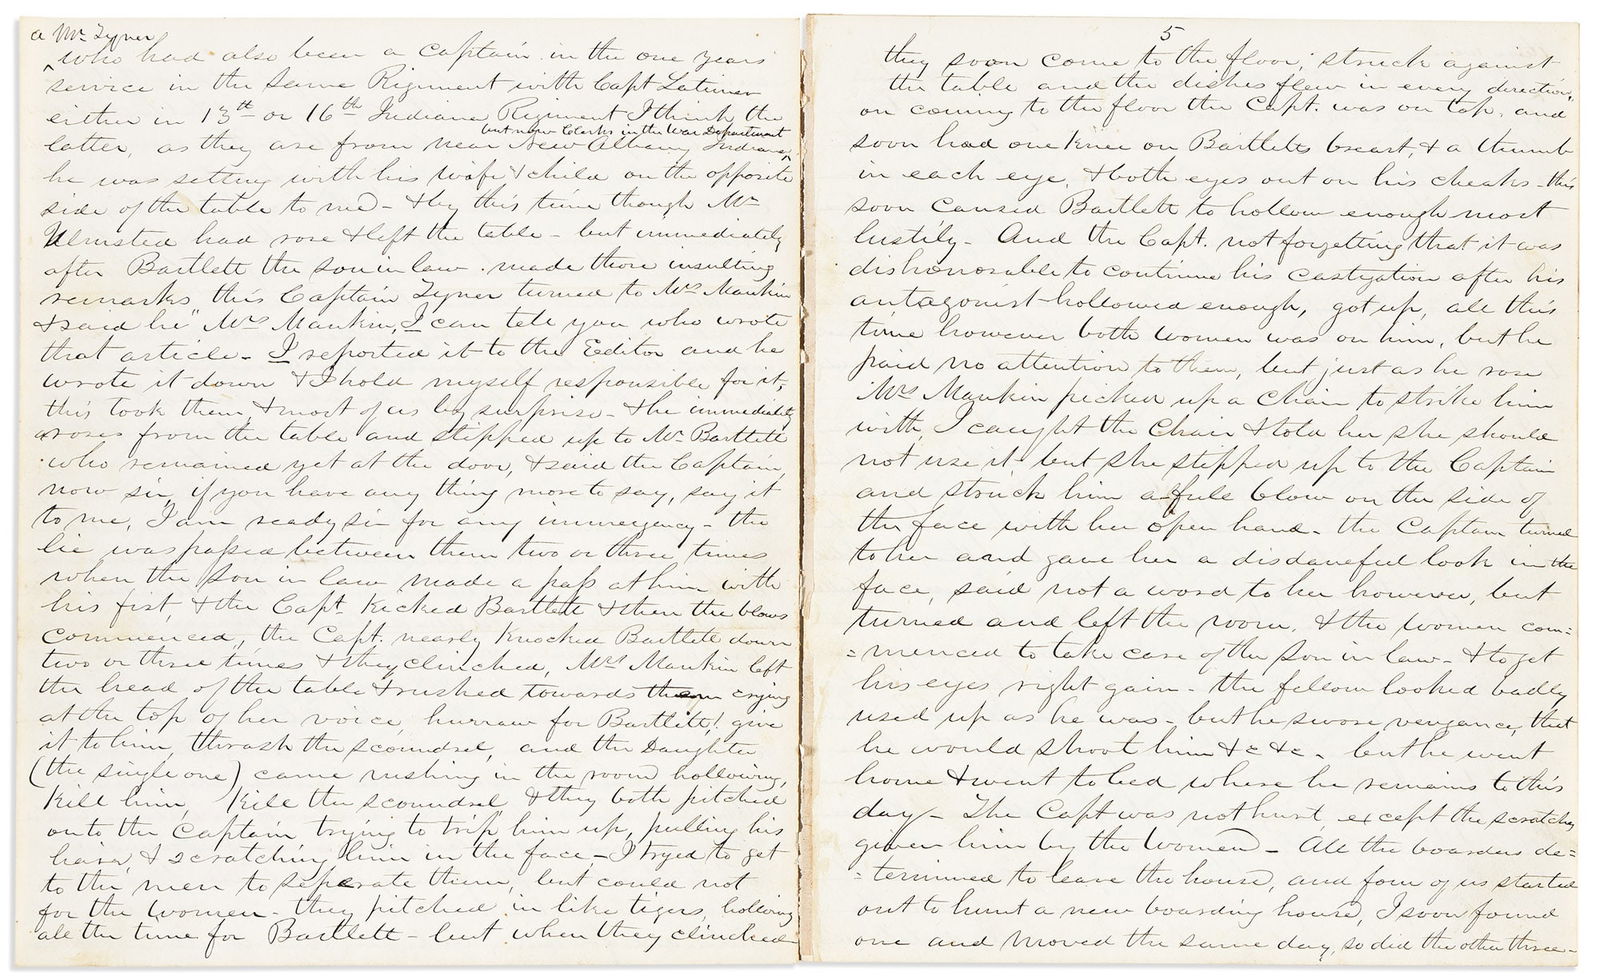 a Mr. Tyner
who had also been a Captain in the one years
service in the same Rigment with Capt Latimer
either in 13th or 16th Indiana Rigiment I think the
but now Clerks in the War Department
latter, as they are from near New Albany Indiana
he was setting with his wife & child on the opposite
side of the table to me) - & by this time though Mr
Ulmsted had rose & left the table - but immediately
after Bartlett the son in law made those insulting
remarks, this Captain Tyner turned to Mrs Mankin
& said he "Mrs Mankin, I can tell you who wrote
that article - I reported it to the Editor and he
wrote it down & I hold myself responsible for it,
this took them, & most of us by surprise - & he immediately
aroses from the table and stepped up to Mr Bartlett
who remained yet at the door, & said the Captain,
now sir, if you have any thing more to say, say it
to me, I am ready sir for any immergency - the
lie was passed between them two or three times
when the son in law made a pass at him with
his fist, & the Capt. Kicked Bartlett & then the blows
commenced, the Capt. nearly Knocked Bartlett down
two or three times & they clinched, Mrs Mankin left
the head of the table & rushed towards them crying
at the top of her voice, hurraw for Bartlett! give
it to him, thrash the scoundrel, and the Daughter
(the single one) came rushing in the room hollowing,
Kill him, Kill the scoundrel & they both pitched
onto the Captain trying to trip him up, pulling his
hair, & scratching him in the face - I tryed to get
to the men to seperate them, but could not
for the women - they pitched in like tigers, hollowing
all the time for Bartlett - but when they clinched
5
they soon come to the floor, struck against
the table and the dishes flew in every direction,
on coming to the floor the Capt. was on top, and
soon had one Knee on Bartletts breast, & a thumb
in each eye, & both eyes out on his cheaks - this
soon caused Bartlett to hollow enough most
lustily - And the Capt. not forgetting that it was
dishonorable to continue his castigation after his
antagonist hollowed enough, got up, all this
time however both women was on him, but he
paid no attention to them, but just as he rose
Mrs Mankin picked up a Chair to strike him
with, I caught the Chair & told her she should
not use it, but she stepped up to the Captain
and struck him a full blow on the side of
the face with her open hand - the Captain turned
to her and gave her a disdaneful look in the
face, said not a word to her however, but
turned and left the room, & the women com=
=menced to take care of the son in law - & to get
his eyes right gain - the fellow looked badly
used up as he was - but he swore vengance, that
he would shoot him &c &c - but he went
home & went to bed where he remains to this
day - The Capt was not hurt, except the scratches
given him by the Women - All the boarders de=
=termined to leave the house, and four of us started
out to hunt a new boarding house, I soon found
one and moved the same day, so did the other three -